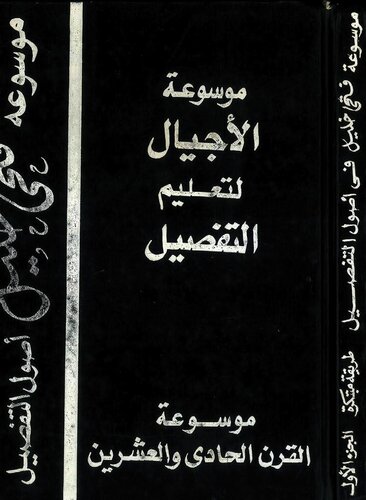 موسوعة
الأجيال
لتعليم
التفصيل
موسوعة
القرن الحادى والعشرين
موسوعة فتحى خليل أصول التفصيل
موسوعة فتحى خليل فى أصول التفصيل طريقة مبتكرة الجزء الأول